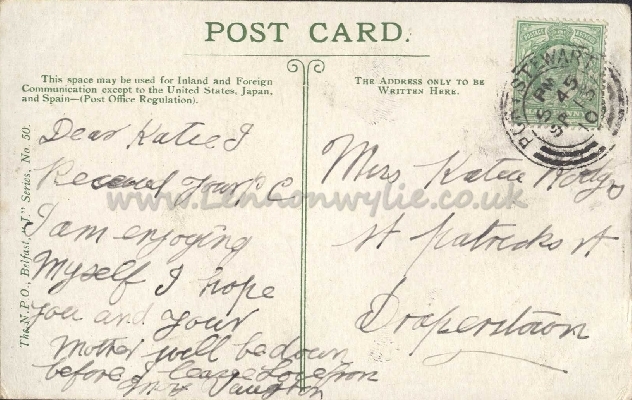 POST CARD.
This space may be used for Inland and Foreign
Communication except to the United States, Japan,
and Spain—(Post Office Regulation).
THE ADDRESS ONLY TO BE
WRITTEN HERE.
PORTSTEWART
5 PM
SP 15
10
The N.P.O., Belfast, "J." Series, No. 50.
Dear Katie I
Received Your P C
I am enjoying
Myself I hope
you and your
Mother will be down
before I leave
Miss Katie
St Patricks St
Draperstown
www.Lennonwylie.co.uk